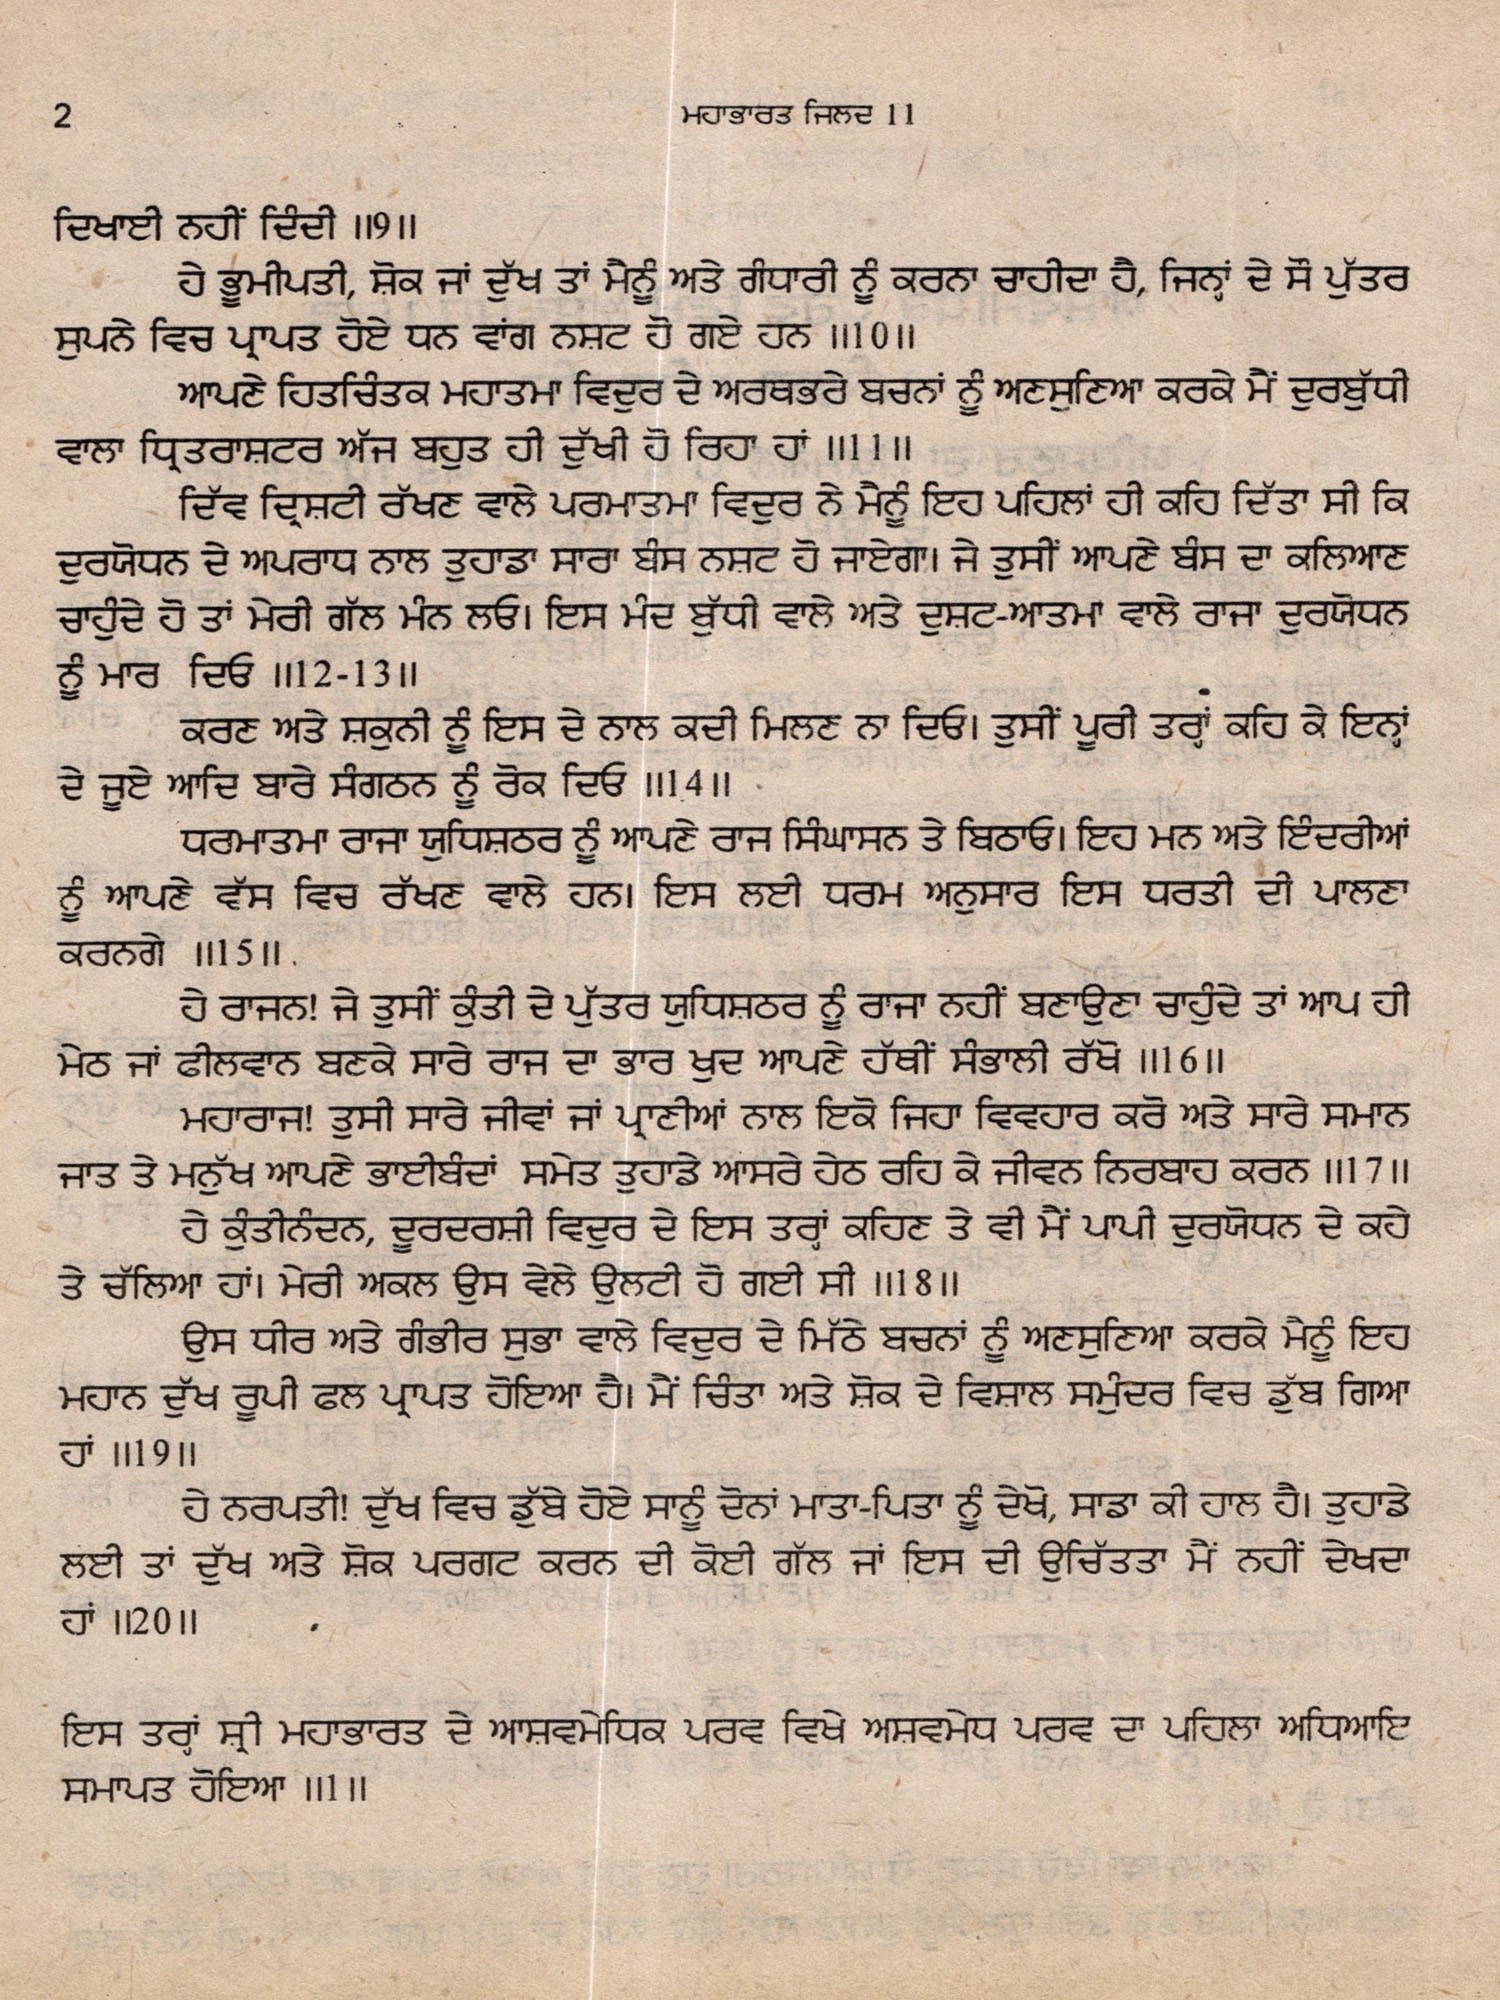 2
ਮਹਾਭਾਰਤ ਜਿਲਦ 11
ਦਿਖਾਈ ਨਹੀਂ ਦਿੰਦੀ ॥9॥
ਹੇ ਭੂਮੀਪਤੀ, ਸ਼ੋਕ ਜਾਂ ਦੁੱਖ ਤਾਂ ਮੈਨੂੰ ਅਤੇ ਗੰਧਾਰੀ ਨੂੰ ਕਰਨਾ ਚਾਹੀਦਾ ਹੈ, ਜਿਨ੍ਹਾਂ ਦੇ ਸੌ ਪੁੱਤਰ
ਸੁਪਨੇ ਵਿਚ ਪ੍ਰਾਪਤ ਹੋਏ ਧਨ ਵਾਂਗ ਨਸ਼ਟ ਹੋ ਗਏ ਹਨ ॥10॥
ਆਪਣੇ ਹਿਤਚਿੰਤਕ ਮਹਾਤਮਾ ਵਿਦੁਰ ਦੇ ਅਰਥਭਰੇ ਬਚਨਾਂ ਨੂੰ ਅਣਸੁਣਿਆ ਕਰਕੇ ਮੈਂ ਦੁਰਬੁੱਧੀ
ਵਾਲਾ ਧ੍ਰਿਤਰਾਸ਼ਟਰ ਅੱਜ ਬਹੁਤ ਹੀ ਦੁੱਖੀ ਹੋ ਰਿਹਾ ਹਾਂ ॥11॥
ਦਿੱਵ ਦ੍ਰਿਸ਼ਟੀ ਰੱਖਣ ਵਾਲੇ ਪਰਮਾਤਮਾ ਵਿਦੁਰ ਨੇ ਮੈਨੂੰ ਇਹ ਪਹਿਲਾਂ ਹੀ ਕਹਿ ਦਿੱਤਾ ਸੀ ਕਿ
ਦੁਰਯੋਧਨ ਦੇ ਅਪਰਾਧ ਨਾਲ ਤੁਹਾਡਾ ਸਾਰਾ ਬੰਸ ਨਸ਼ਟ ਹੋ ਜਾਏਗਾ। ਜੇ ਤੁਸੀਂ ਆਪਣੇ ਬੰਸ ਦਾ ਕਲਿਆਣ
ਚਾਹੁੰਦੇ ਹੋ ਤਾਂ ਮੇਰੀ ਗੱਲ ਮੰਨ ਲਓ। ਇਸ ਮੰਦ ਬੁੱਧੀ ਵਾਲੇ ਅਤੇ ਦੁਸ਼ਟ-ਆਤਮਾ ਵਾਲੇ ਰਾਜਾ ਦੁਰਯੋਧਨ
ਨੂੰ ਮਾਰ ਦਿਓ ॥12-13॥
ਕਰਣ ਅਤੇ ਸ਼ਕੁਨੀ ਨੂੰ ਇਸ ਦੇ ਨਾਲ ਕਦੀ ਮਿਲਣ ਨਾ ਦਿਓ। ਤੁਸੀਂ ਪੂਰੀ ਤਰ੍ਹਾਂ ਕਹਿ ਕੇ ਇਨ੍ਹਾਂ
ਦੇ ਜੂਏ ਆਦਿ ਬਾਰੇ ਸੰਗਠਨ ਨੂੰ ਰੋਕ ਦਿਓ ॥14॥
ਧਰਮਾਤਮਾ ਰਾਜਾ ਯੁਧਿਸ਼ਠਰ ਨੂੰ ਆਪਣੇ ਰਾਜ ਸਿੰਘਾਸਨ ਤੇ ਬਿਠਾਓ। ਇਹ ਮਨ ਅਤੇ ਇੰਦਰੀਆਂ
ਨੂੰ ਆਪਣੇ ਵੱਸ ਵਿਚ ਰੱਖਣ ਵਾਲੇ ਹਨ। ਇਸ ਲਈ ਧਰਮ ਅਨੁਸਾਰ ਇਸ ਧਰਤੀ ਦੀ ਪਾਲਣਾ
ਕਰਨਗੇ ॥15॥
ਹੇ ਰਾਜਨ! ਜੇ ਤੁਸੀਂ ਕੁੰਤੀ ਦੇ ਪੁੱਤਰ ਯੁਧਿਸ਼ਠਰ ਨੂੰ ਰਾਜਾ ਨਹੀਂ ਬਣਾਉਣਾ ਚਾਹੁੰਦੇ ਤਾਂ ਆਪ ਹੀ
ਮੇਠ ਜਾਂ ਫੀਲਵਾਨ ਬਣਕੇ ਸਾਰੇ ਰਾਜ ਦਾ ਭਾਰ ਖੁਦ ਆਪਣੇ ਹੱਥੀਂ ਸੰਭਾਲੀ ਰੱਖੋ ॥16॥
ਮਹਾਰਾਜ! ਤੁਸੀ ਸਾਰੇ ਜੀਵਾਂ ਜਾਂ ਪ੍ਰਾਣੀਆਂ ਨਾਲ ਇਕੋ ਜਿਹਾ ਵਿਵਹਾਰ ਕਰੋ ਅਤੇ ਸਾਰੇ ਸਮਾਨ
ਜਾਤ ਤੇ ਮਨੁੱਖ ਆਪਣੇ ਭਾਈਬੰਦਾਂ ਸਮੇਤ ਤੁਹਾਡੇ ਆਸਰੇ ਹੇਠ ਰਹਿ ਕੇ ਜੀਵਨ ਨਿਰਬਾਹ ਕਰਨ ॥17॥
ਹੇ ਕੁੰਤੀਨੰਦਨ, ਦੂਰਦਰਸ਼ੀ ਵਿਦੁਰ ਦੇ ਇਸ ਤਰ੍ਹਾਂ ਕਹਿਣ ਤੇ ਵੀ ਮੈਂ ਪਾਪੀ ਦੁਰਯੋਧਨ ਦੇ ਕਹੇ
ਤੇ ਚੱਲਿਆ ਹਾਂ। ਮੇਰੀ ਅਕਲ ਉਸ ਵੇਲੇ ਉਲਟੀ ਹੋ ਗਈ ਸੀ ॥18॥
ਉਸ ਧੀਰ ਅਤੇ ਗੰਭੀਰ ਸੁਭਾ ਵਾਲੇ ਵਿਦੁਰ ਦੇ ਮਿੱਠੇ ਬਚਨਾਂ ਨੂੰ ਅਣਸੁਣਿਆ ਕਰਕੇ ਮੈਨੂੰ ਇਹ
ਮਹਾਨ ਦੁੱਖ ਰੂਪੀ ਫਲ ਪ੍ਰਾਪਤ ਹੋਇਆ ਹੈ। ਮੈਂ ਚਿੰਤਾ ਅਤੇ ਸ਼ੋਕ ਦੇ ਵਿਸ਼ਾਲ ਸਮੁੰਦਰ ਵਿਚ ਡੁੱਬ ਗਿਆ
ਹਾਂ ॥19॥
ਹੇ ਨਰਪਤੀ! ਦੁੱਖ ਵਿਚ ਡੁੱਬੇ ਹੋਏ ਸਾਨੂੰ ਦੋਨਾਂ ਮਾਤਾ-ਪਿਤਾ ਨੂੰ ਦੇਖੋ, ਸਾਡਾ ਕੀ ਹਾਲ ਹੈ। ਤੁਹਾਡੇ
ਲਈ ਤਾਂ ਦੁੱਖ ਅਤੇ ਸ਼ੋਕ ਪਰਗਟ ਕਰਨ ਦੀ ਕੋਈ ਗੱਲ ਜਾਂ ਇਸ ਦੀ ਉਚਿੱਤਤਾ ਮੈਂ ਨਹੀਂ ਦੇਖਦਾ
ਹਾਂ ॥20॥
ਇਸ ਤਰ੍ਹਾਂ ਸ਼੍ਰੀ ਮਹਾਭਾਰਤ ਦੇ ਆਸ਼ਵਮੇਧਿਕ ਪਰਵ ਵਿਖੇ ਅਸ਼ਵਮੇਧ ਪਰਵ ਦਾ ਪਹਿਲਾ ਅਧਿਆਇ
ਸਮਾਪਤ ਹੋਇਆ ॥1॥